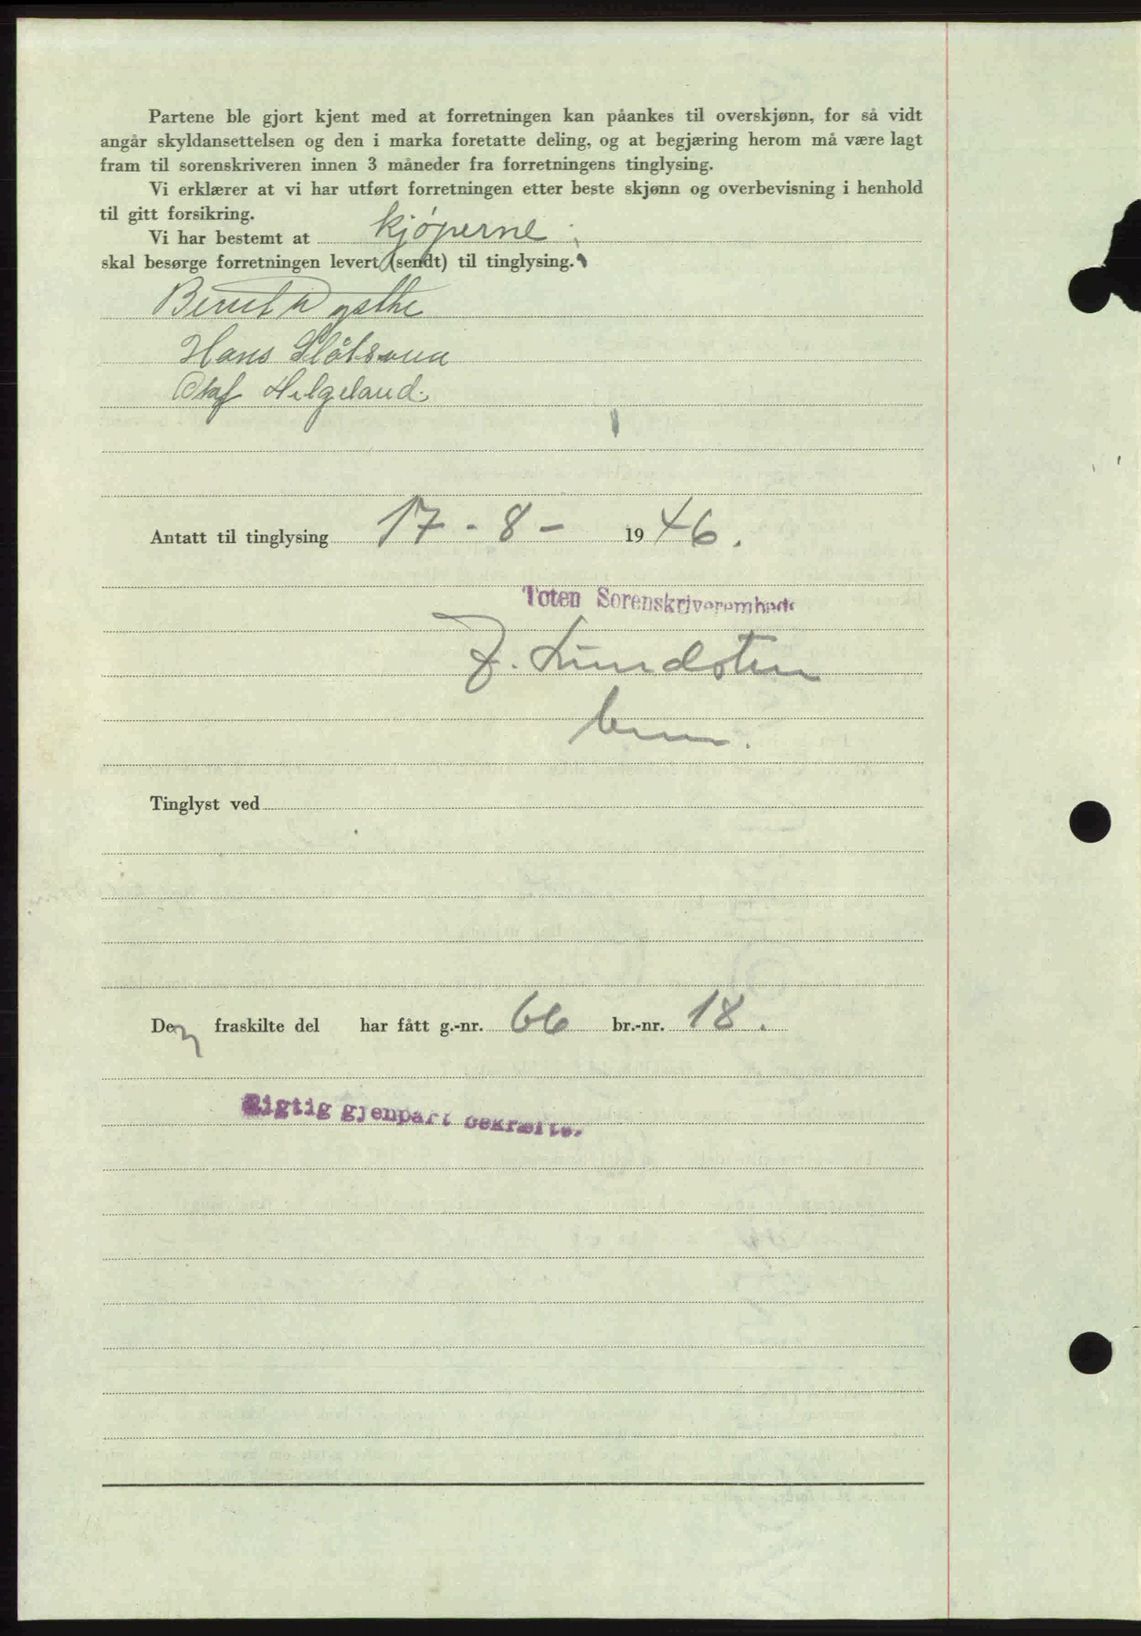 Partene ble gjort kjent med at forretningen kan påankes til overskjønn, for så vidt
angår skyldansettelsen og den i marka foretatte deling, og at begjæring herom må være lagt
fram til sorenskriveren innen 3 måneder fra forretningens tinglysing.
Vi erklærer at vi har utført forretningen etter beste skjønn og overbevisning i henhold
til gitt forsikring.
Vi har bestemt at kjøperne
skal besørge forretningen levert (sendt) til tinglysing.
Hans
Olaf Helgeland.
Antatt til tinglysing 17 - 8 - 1946.
Toten Sorenskriverembede
J. Lundsten
Tinglyst ved
Den fraskilte del har fått g.-nr. 66 br.-nr. 18.
Rigtig gjenpart bekræftes.